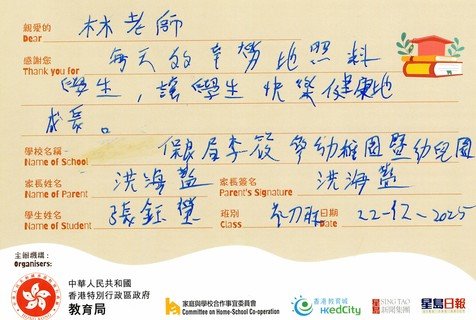 親愛的 林老師
Dear
感謝您 每天的辛勞地照料
Thank you for
學生，讓學生快樂健康地
成長。
學校名稱 保良局李筱 幼稚園暨幼兒園
Name of School
家長姓名 洪海藍 家長簽名 洪海藍
Name of Parent Parent's Signature
學生姓名 張鈺 班別 日期 22-12-2025
Name of Student Class Date
主辦機構：
Organisers:
中華人民共和國
香港特別行政區政府
教育局
家庭與學校合作事宜委員會
Committee on Home-School Co-operation
香港教育城
HKedCity
星島 SING TAO
新聞集團
星島日報